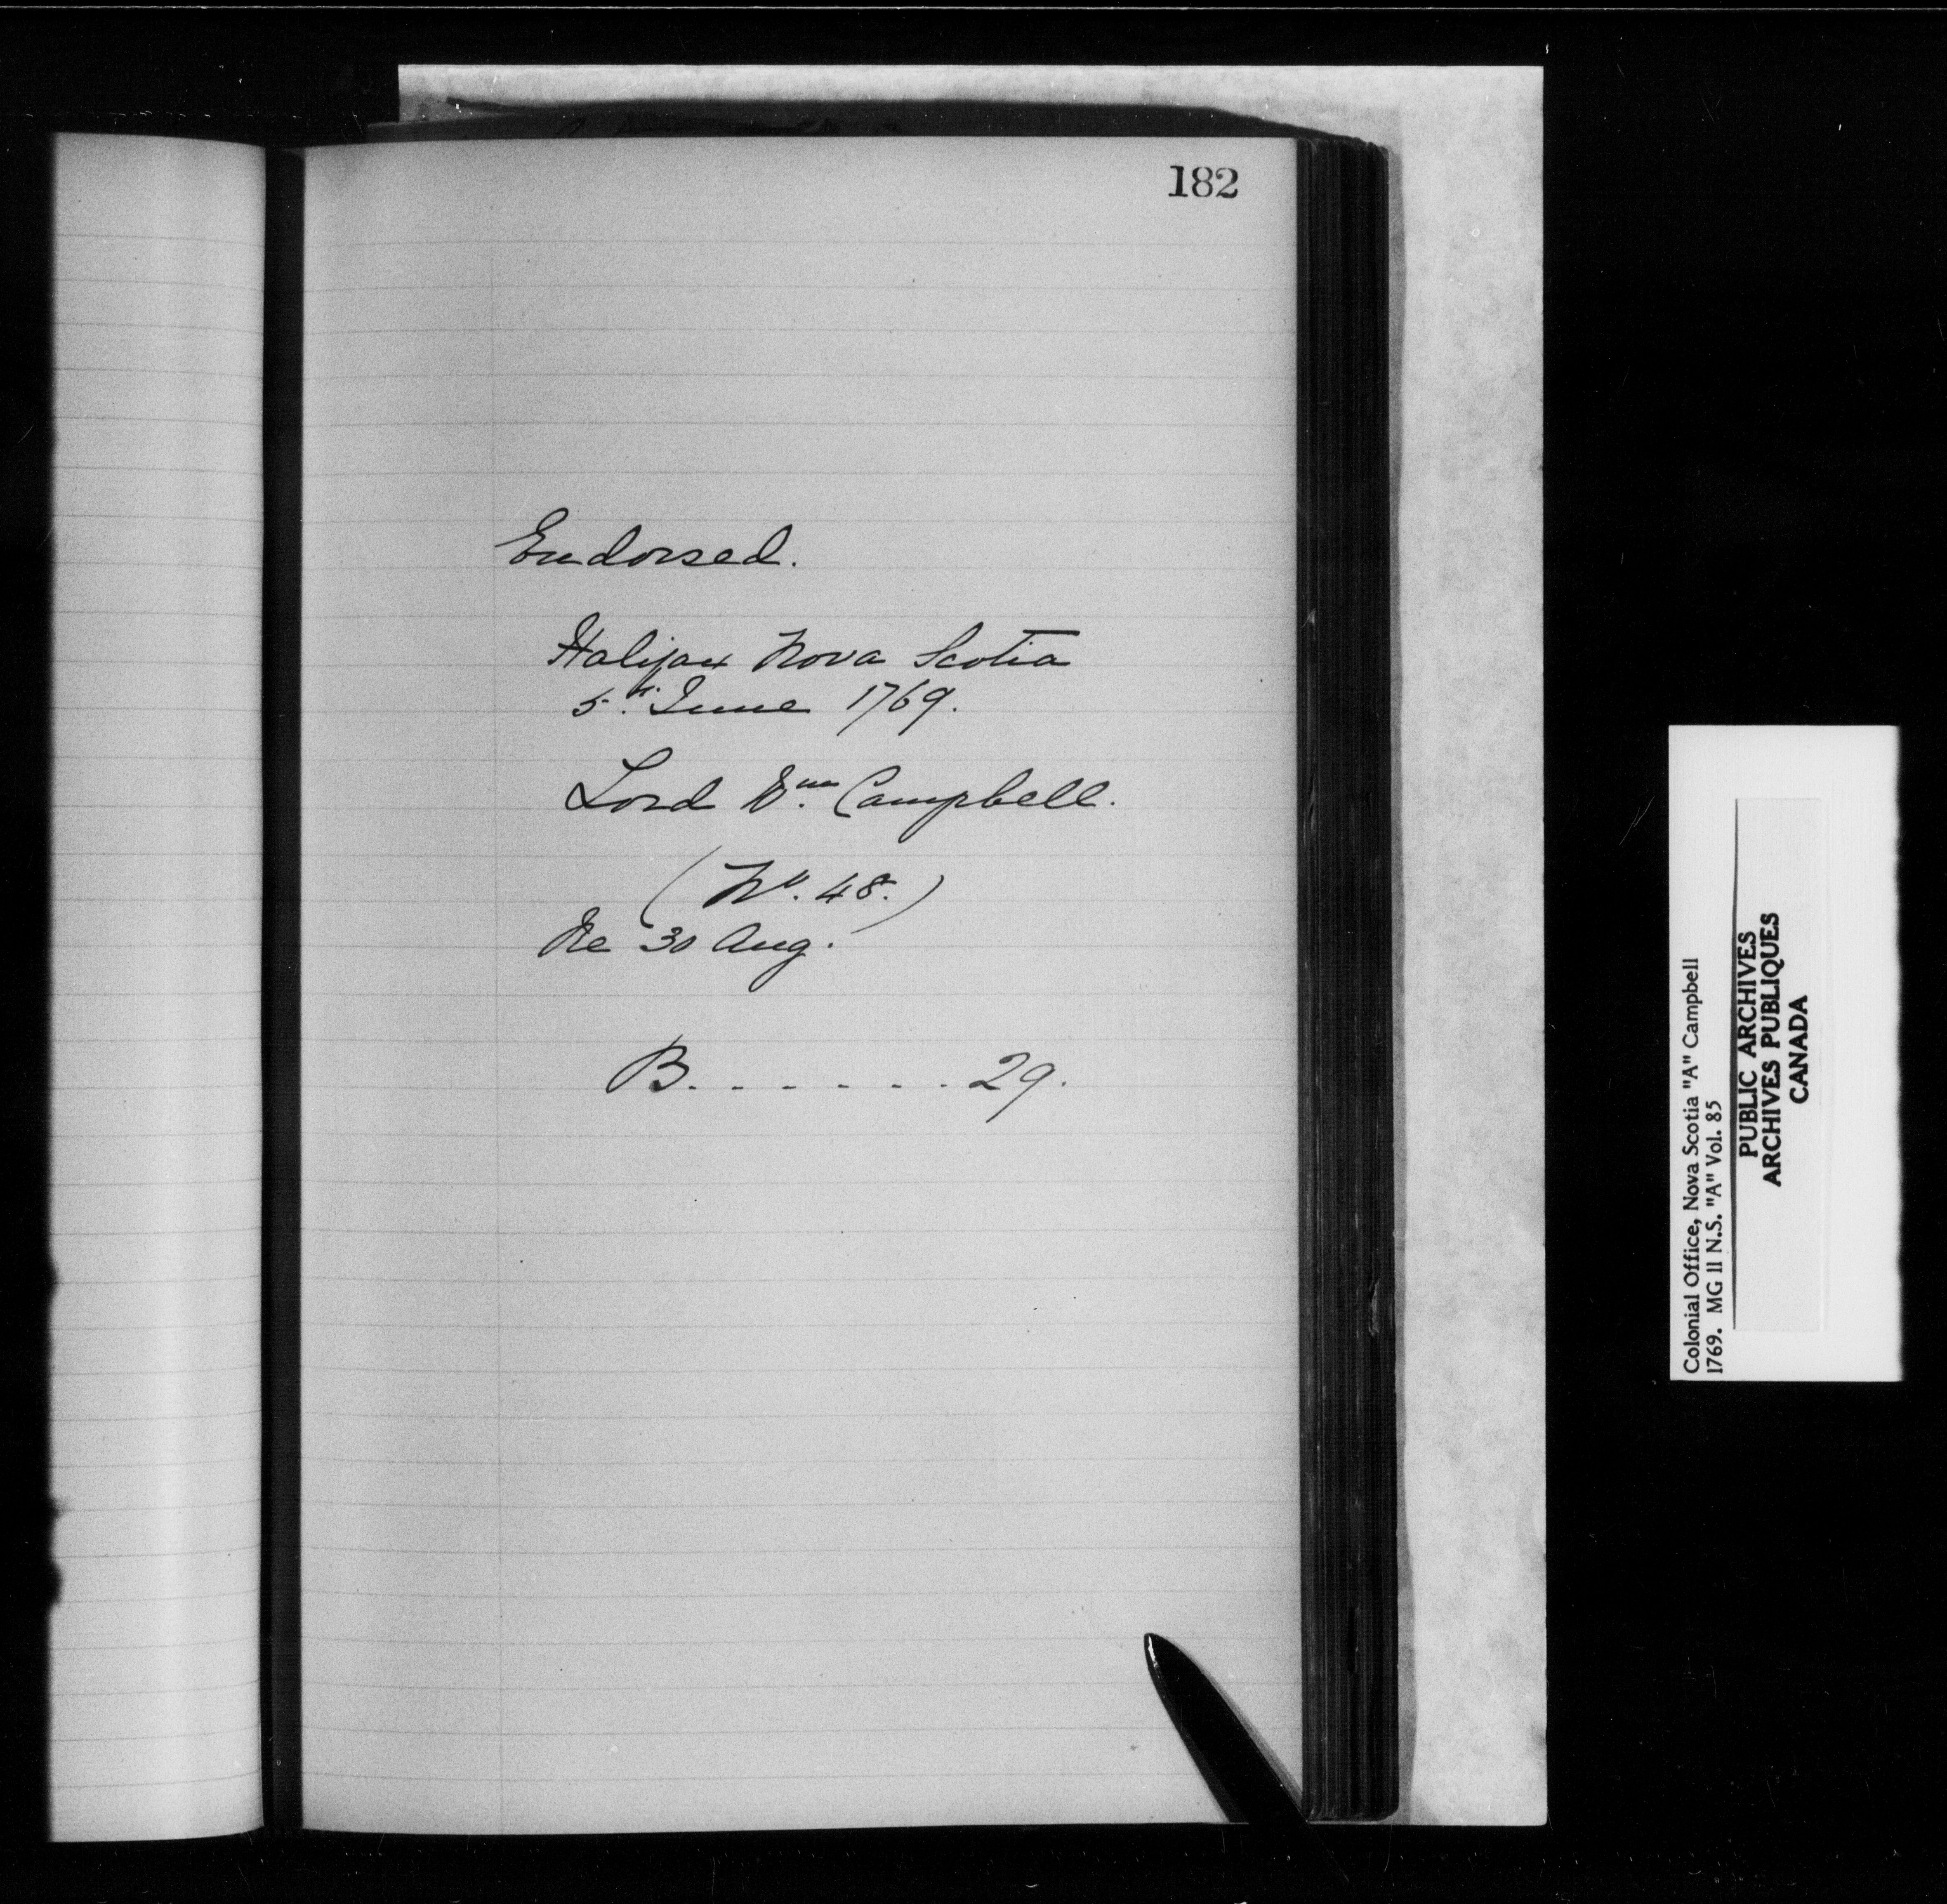 182
Endorsed.
Halifax Nova Scotia
5th June 1769.
Lord Wm. Campbell.
(No. 48.)
Re 30 Aug.
B. . . . . . . 29.
Colonial Office, Nova Scotia "A" Campbell
1769. MG 11 N.S. "A" Vol. 85
PUBLIC ARCHIVES
ARCHIVES PUBLIQUES
CANADA